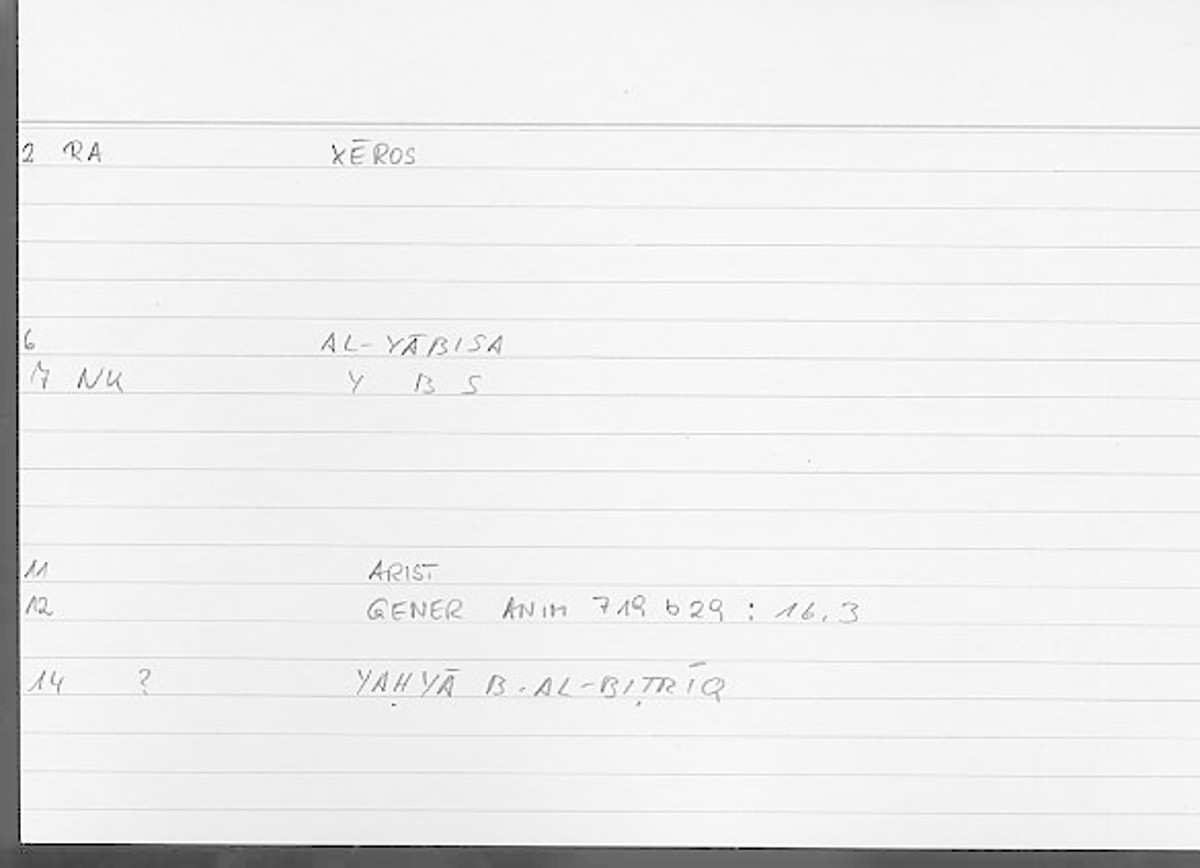 2 RA XĒROS
6 AL-YĀBISA
7 NU Y B S
11 ARIST
12 GENER ANIM 719 b 29 : 16.3
14 ? YAḤYĀ B. AL-BIṬRĪQ